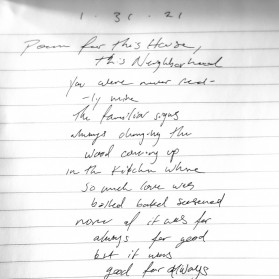 1 . 31 . 21
Poem for this House,
this Neighborhood
you were never real-
-ly mine
the familiar signs
always changing the
wood coming up
in the kitchen where
so much love was
boiled baked seasoned
none of it was for
always for good
but it was
good for always